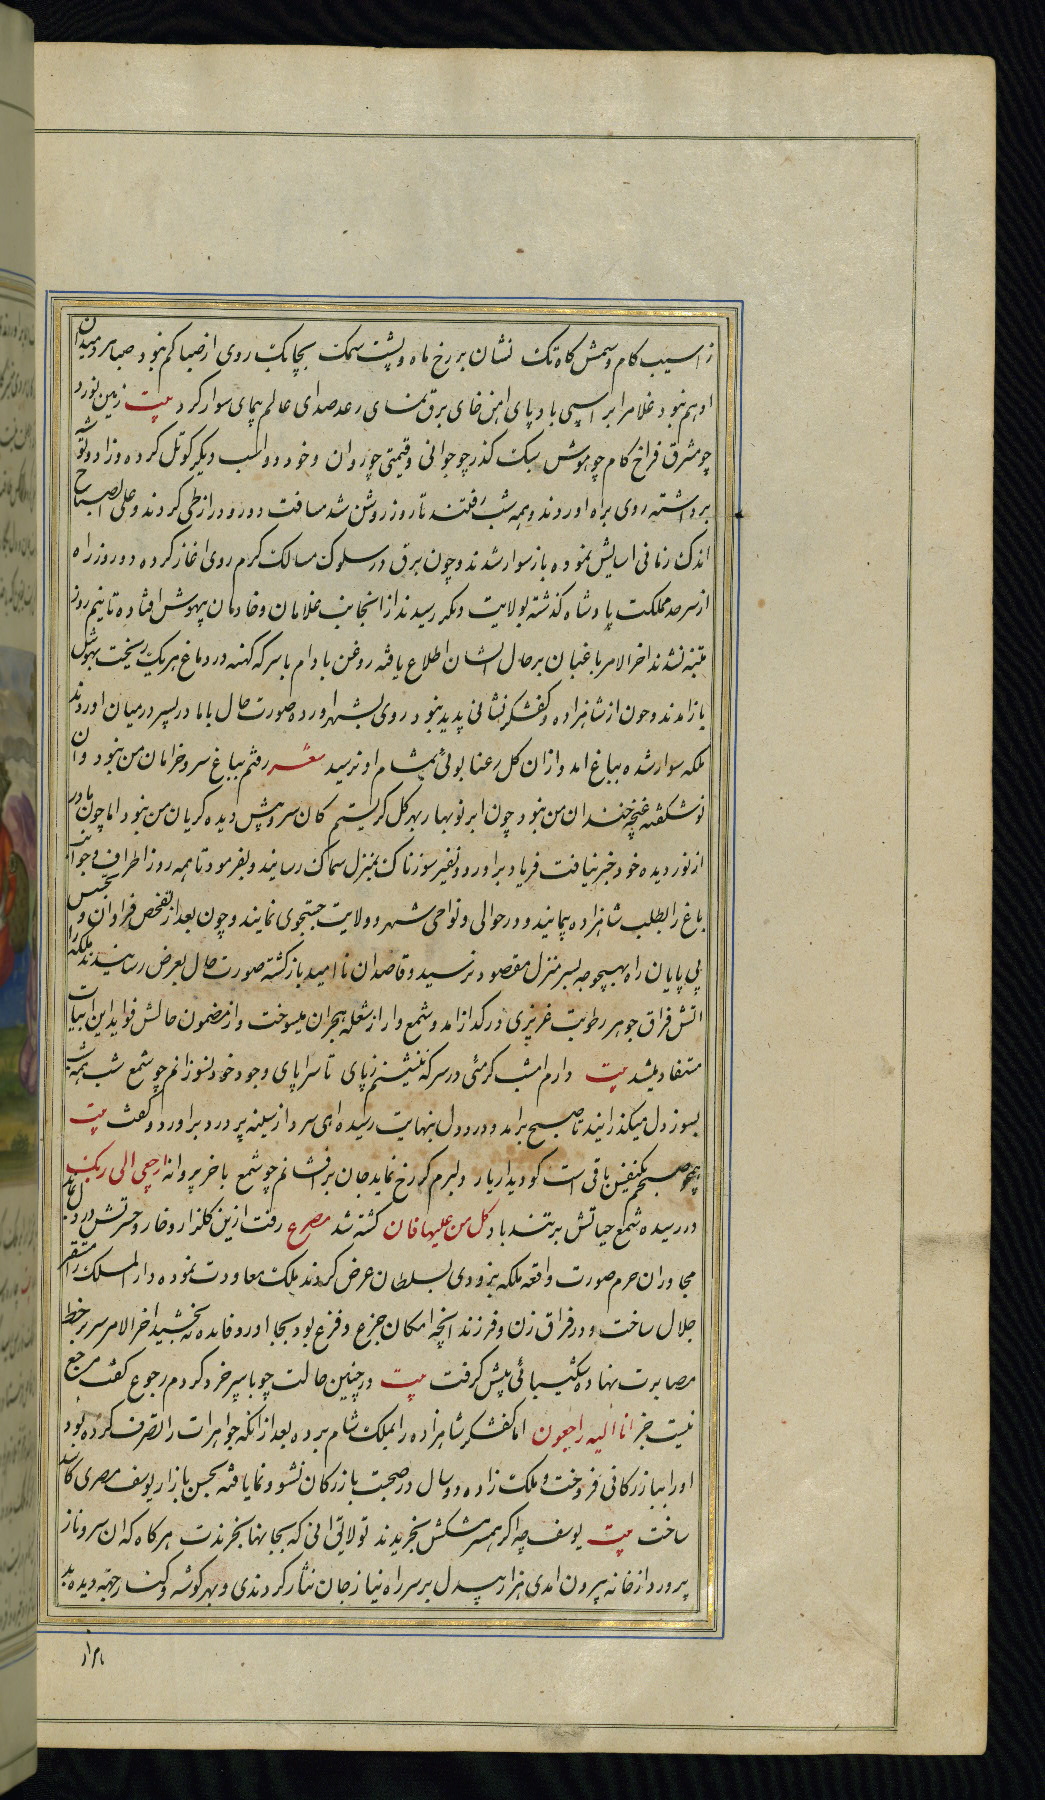 ز آسیب کام و سمش کاه تک نشان بر رخ ماه و پشت سمک بچابک روی از صبا کم نبود صبا مرد میدان
او هم نبود غلامرا بر اسپی باد پای اهن خای برق نمای رعد صدای عالم پیمای سوار کرد بیت زمین نورد
چو مشرق فراخ کام چو هوش سبک کذر چو جوانی و قیمتی چو روان و خود دو اسب دیکر کوتل کرده و زاد و توشه
برداشته روی براه اوردند و همه شب رفتند تا روز روشن شد مسافت دور و دراز طی کردند و علی الصباح
اندک زمانی اسایش نموده باز سوار شدند و چون برق در سلوک مسالک کرم روی اغاز کرده دو روز راه
از سرحد مملکت پادشاه کذشته بولایت دیکر رسیدند از انجانب غلامان و خادمان بیهوش افتاده تا نیم روز
متنبه نشدند اخر الامر باغبان بر حال ایشان اطلاع یافته روغن بادام با سرکه کهنه در دماغ هر یک ریخت بهوش
باز امدند و چون از شاهزاده و کفشکر نشانی پدید نبود روی بشهر اورده صورت حال با مادر پسر در میان اوردند
ملکه سوار شده بباغ امد و از ان کل رعنا بوئی بمشام او نرسید شعر رفتم بباغ سرو خرامان من نبود و ان
نو شکفته غنچه خندان من نبود چون ابر نوبهار بهر کل کریستم کان سرو پیش دیده کریان من نبود اما چون مادر
از نور دیده خود خبر نیافت فریاد براورد و نفیر سوزناک بمنزل سماک رسانید و بفرمود تا همه روز اطراف و جوانب
باغ را بطلب شاهزاده پیمایند و در حوالی و نواحی شهر و ولایت جستجوی نمایند و چون بعد از تفحص فراوان و تجسس
بی پایان راه بهیچوجه بسر منزل مقصود نرسید و قاصدان نا امید باز کشته صورت حال بعرض رسانیدند ملکه را
اتش فراق جوهر رطوبت غریزی در کداز امد و شمع وار از شعله هجران میسوخت و از مضمون حالش فواید این ابیات
مستفاد میشد بیت دارم امشب کرمئی در سر که ننشینم ز پای تا سراپای وجود خود نسوزانم چو شمع شب همه شب
بسوز دل میکذرانید تا صبح برامد و درد دل بنهایت رسیده اهی سرد از سینه پر درد براورد و کفت بیت
همچو صبحم یکنفس باقی است کو دیدار یار دلبرم کر رخ نماید جان برافشانم چو شمع باخر پروانه ارجعی الی ربک
در رسیده شمع حیاتش بر تند باد کل من علیها فان کشته شد مصرع رفت ازین کلزار و خار حسرتش در دل بماند
مجاوران حرم صورت واقعه ملکه بزودی بسلطان عرض کردند ملک معاودت نموده دار الملک را مستقر
جلال ساخت و در فراق زن و فرزند انچه امکان جزع و فزع بود بجا اورد و فایده نه بخشید اخر الامر سر بر خط
مصابرت نهاده شکیبائی پیش کرفت بیت در چنین حالت چو با سیر خرد کردم رجوع کفت مرجع
نیست جز انا الیه راجعون اما کفشکر شاهزاده را بملک شام برده بعد از انکه جواهرات را تصرف کرده بود
او را ببازرکانی فروخت و ملک زاده دو سال در صحبت بازرکان نشو و نما یافته بحسن بازار یوسف مصری کاسد
ساخت بیت یوسف چه اکر همسر مشکش بخریدند تو لایق انی که بجانها بخرندت هر کاه که ان سرو ناز
پرورد از خانه بیرون امدی هزار بیدل بر سر راه نیاز جان نثار کردندی و بهر کوشه و کنار جهته دیده بد